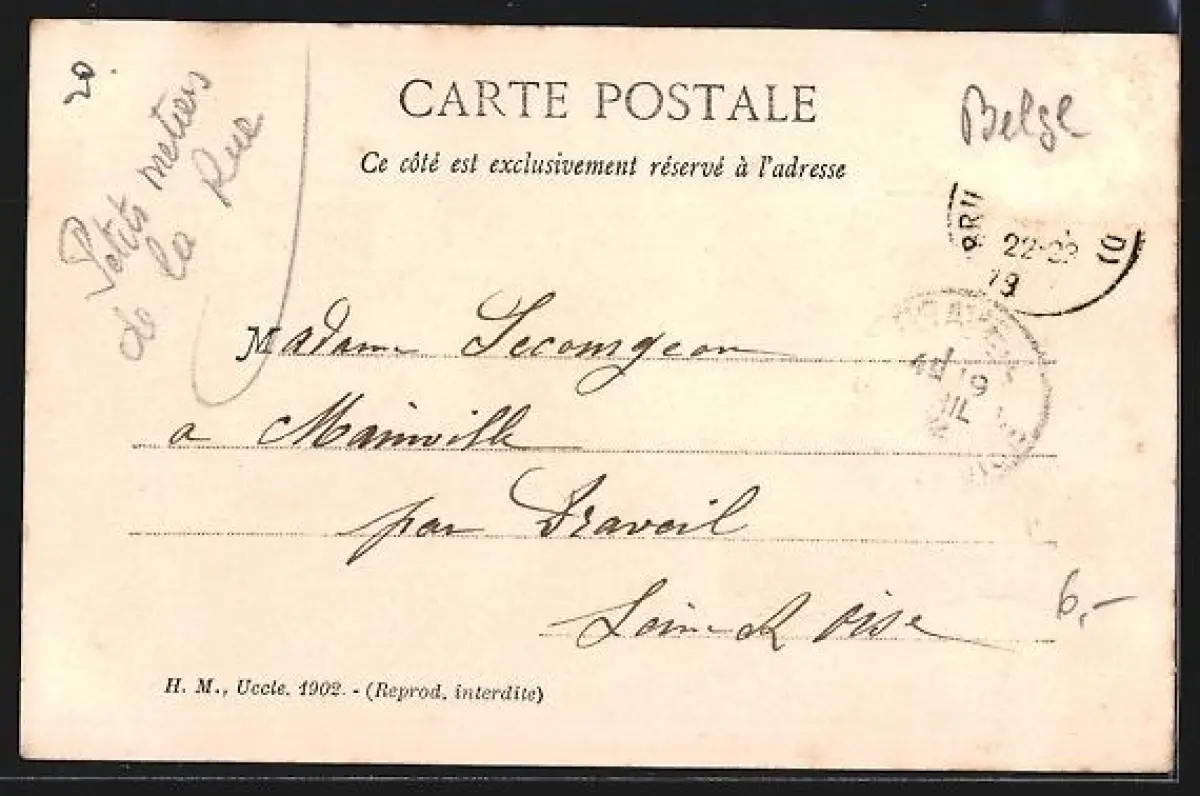 20.
Petits metiers
de la Rue
CARTE POSTALE
Ce côté est exclusivement réservé à l'adresse
Belge
22-23
19
19
Madame
a Mainville
par Draveil
Seine & Oise
6,-
H. M., Uccle. 1902. - (Reprod. interdite)